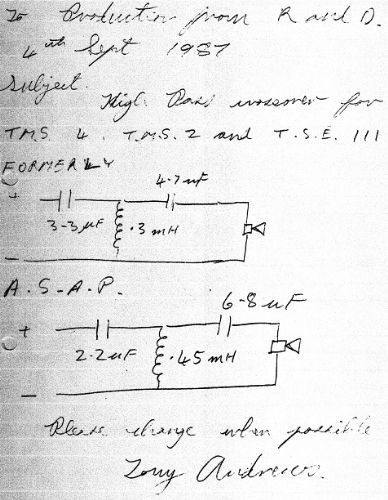 To Production from R and D.
4th Sept 1987
Subject.
High Pass crossover for
TMS 4. T.M.S. 2 and T.S.E. 111
FORMERLY
4.7uf
+
3-3µF
.3mH
-
A.S.A.P.
6-8uF
+
2.2uF
.45mH
-
Please change when possible
Tony Andrews.